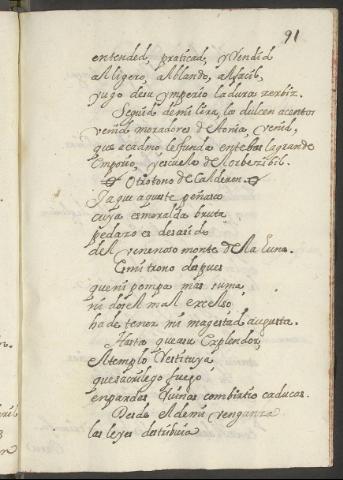 91
entended, praticad, y Vendid
al ligero, al blando, al facil,
yugo desu ymperio la dura zerbiz.
Seguid demi lira, los dulces acentos
venid moradores de Aonia, venid,
que a cadmo le funda entebas la grande
Emporio, y escuela de
Otro tono de Calderon.
Ya que aqueste peñasco
cuya esmeralda bruta
pedazo es desasido
del venenoso monte de la Luna.
Es mi trono despues
que ni pompa mas suma
ni dosel mal excelso
ha de tener mi magestad augusta.
Hasta que a su Explendor,
el templo Restituya
que sacrilego fuego
en pardas Ruinas combirtio caducas.
Desde el de mi venganza
las leyes destribuia